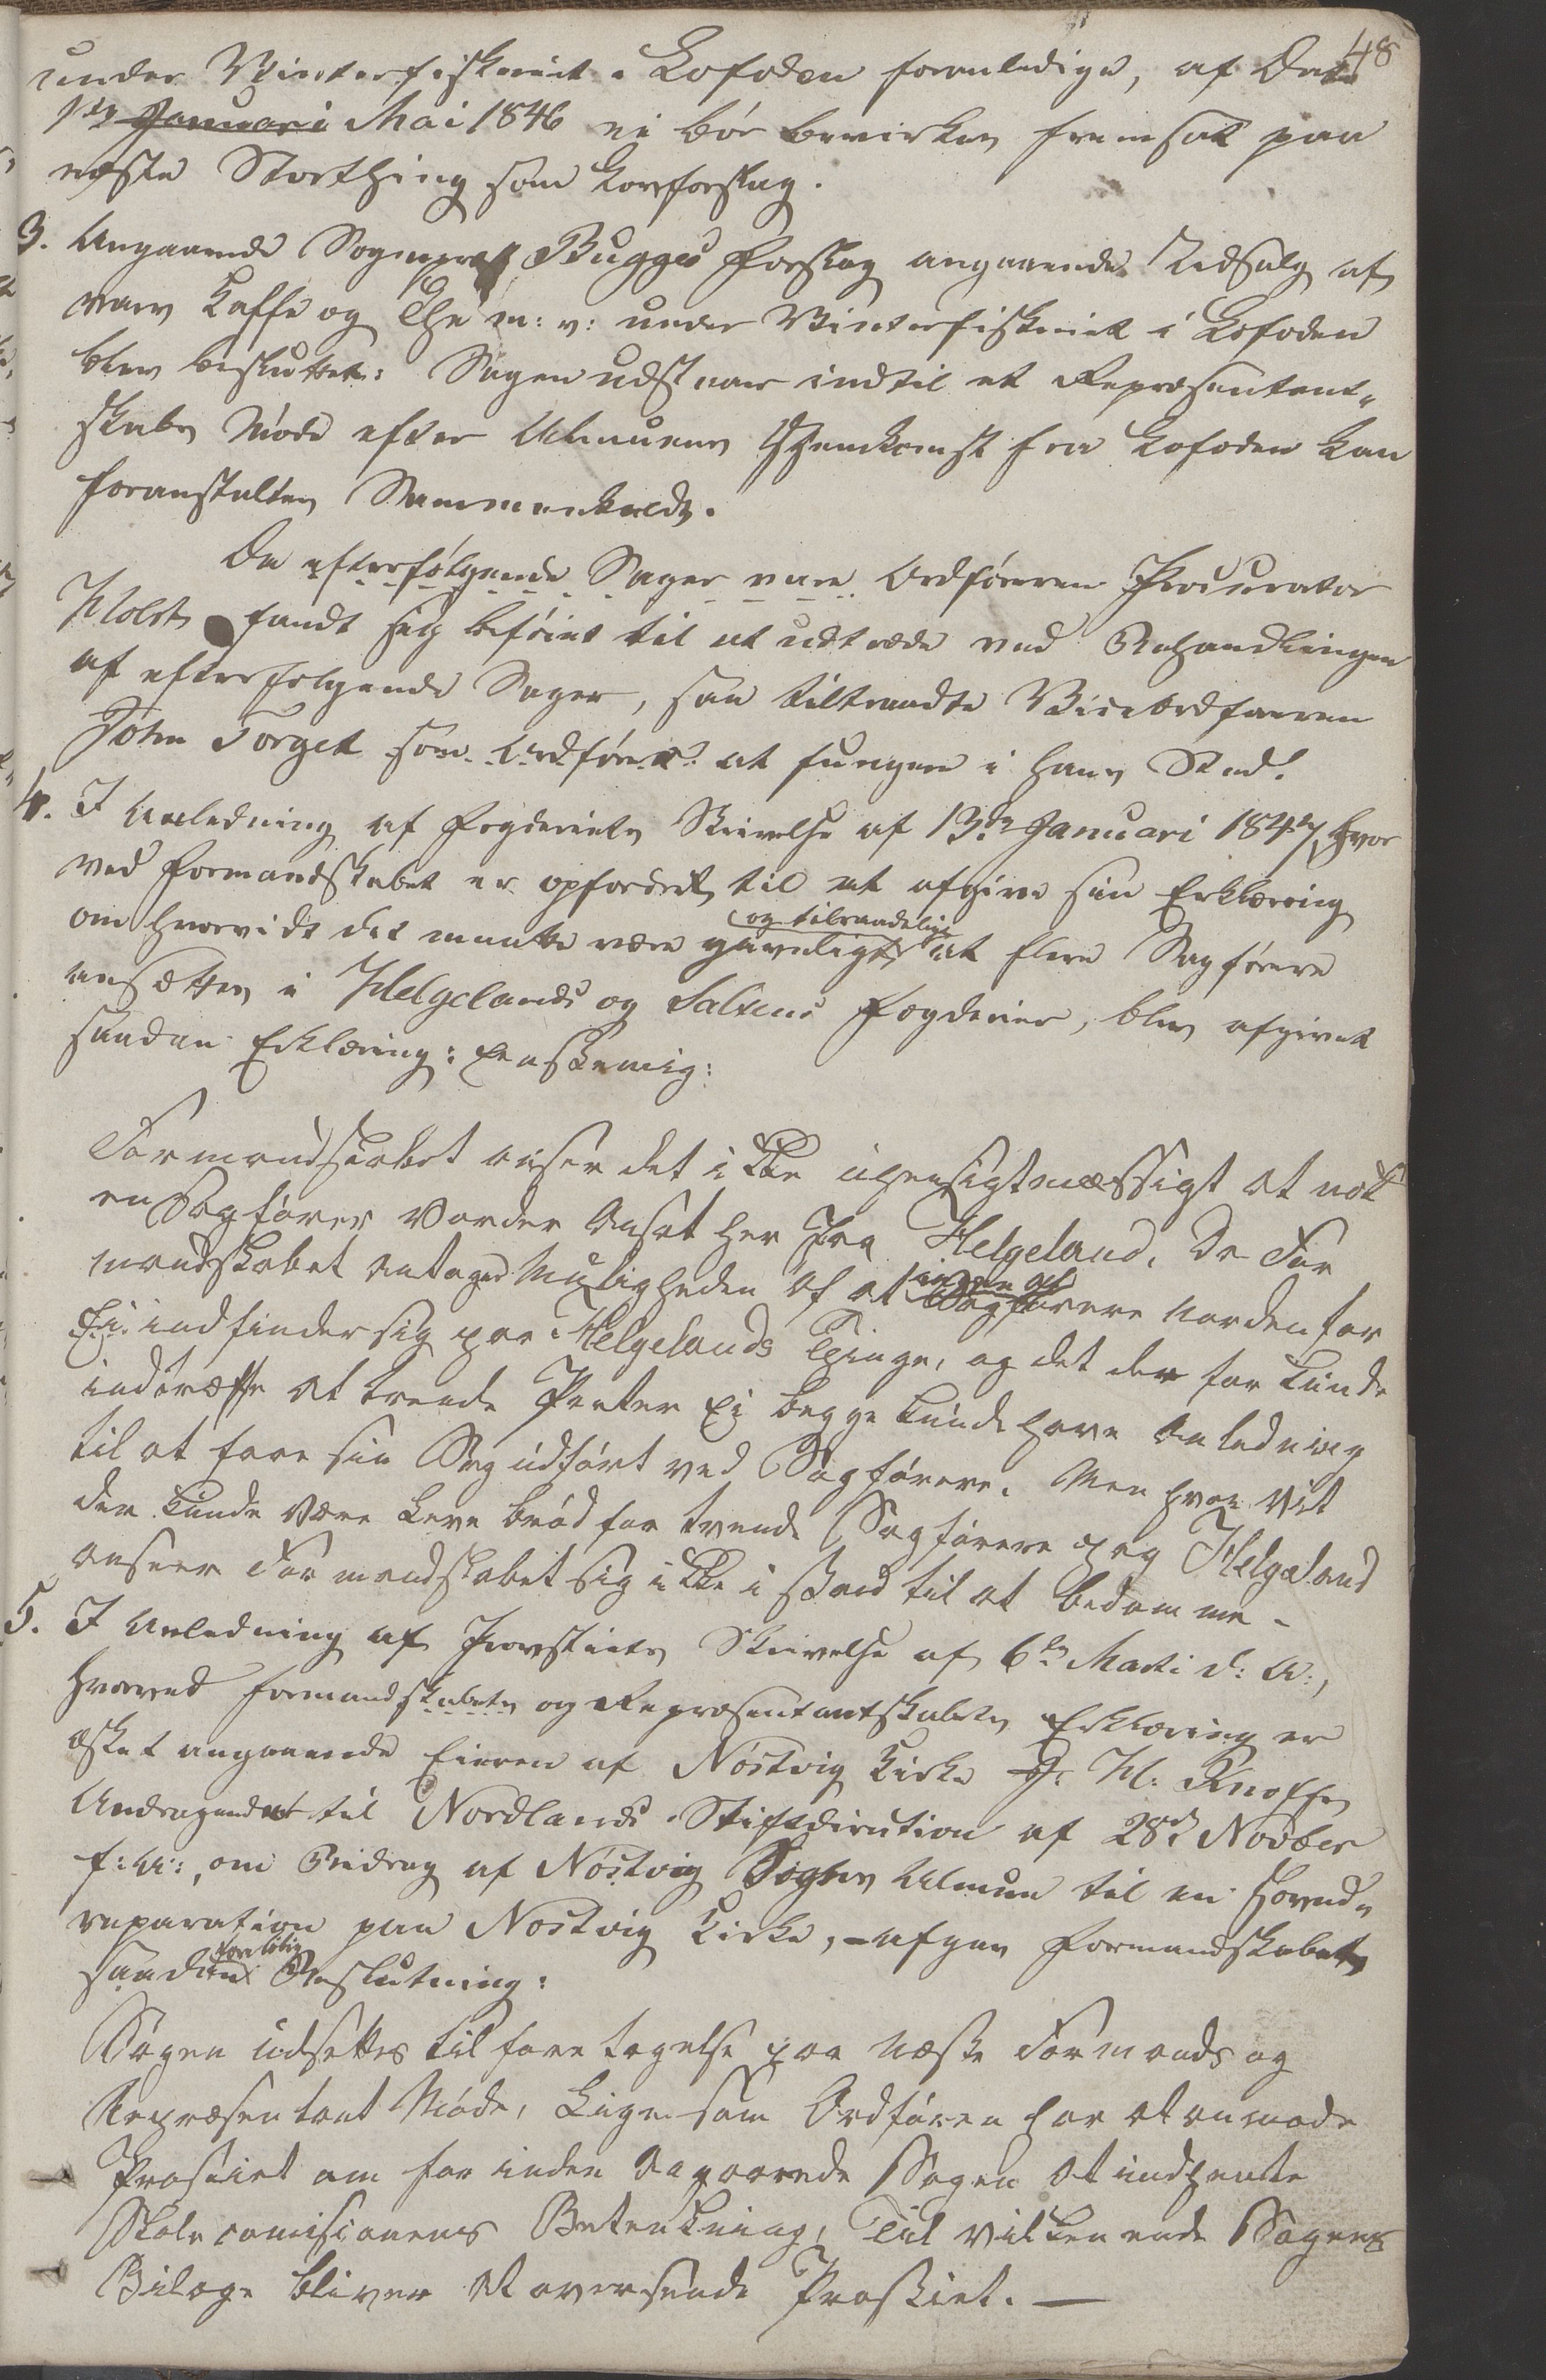 48
under Vinterfiskeriet i Lofoden foranledige, af Dato
1ste Januari Mai 1846 ei bör bevirkes fremsat paa
næste Storthing som Lovforslag.
3. Angaaende Sognepræst Bugges Forslag angaaende Udsalg af
varm Kaffe og The m: v: under Vinterfiskeriet i Lofoden
blev besluttet: Sagen udstaaer indtil et Repræsentant-
skabs Møde efter Almuens Hjemkomst fra Lofoden kan
foranstaltes Sammenkaldt.
Da efterfölgende Sager vare Ordföreren Procurator
Holst fandt sig beföiet til at udtræde ved Behandlingen
af efterfølgende Sager, saa tiltraadte Viceordføreren
John Torget som Ordförer at fungere i hans Sted.
4. I Anledning af Fogderiets Skrivelse af 13de Januari 1847, hvor
ved Formandskabet er opfordret til at afgive sin Erklæring
om hvorvidt det maatte være gavnligt og tilraadeligt at flere Sagförere
ansættes i Helgelands og Saltens Fogderier, blev afgivet
saadan Erklæring: eenstemig:
Formandskabet anser det ikke uhensigtmæssigt at nok
en Sagförer vorder Ansat her paa Helgeland, da For
mandskabet antager Muligheden af at ingen af Sagförere Nordenfor
Ei indfinder sig paa Helgelands Thinge, og det derfor kunde
indtræffe at tvende Parter Ei begge kunde have Anledning
til at faae sin Sag udfört ved Sagförere. Men hvor vit
der kunde være Levebröd for tvende Sagförere paa Helgeland
anseer Formandskabet sig ikke i Stand til at bedømme.
5. I Anledning af Provstiets Skrivelse af 6te Marti d: A:,
hvorved Formandskabets og Repræsentantskabets Erklæring er
æsket angaaende Eieren af Nöstvig Kirke J. H. Knoffs
Andragende til Nordlands Stiftsdirection af 28de Novber
f: A:, om Bidrag af Nöstvig Sogns Almue til en Hoved-
reparation paa Nöstvig Kirke, - afgav Formandskabet
saadan forelöbig Beslutning:
Sagen udsettes til foretagelse paa næste Formands og
Repræsentant Möde, Ligesom Ordføreren har at anmode
Prostiet om forinden Angaaende Sagen at indhente
Skolecomisionens Betenkning, Til vilken ende Sagens
Bilage bliver at oversende Prostiet. —